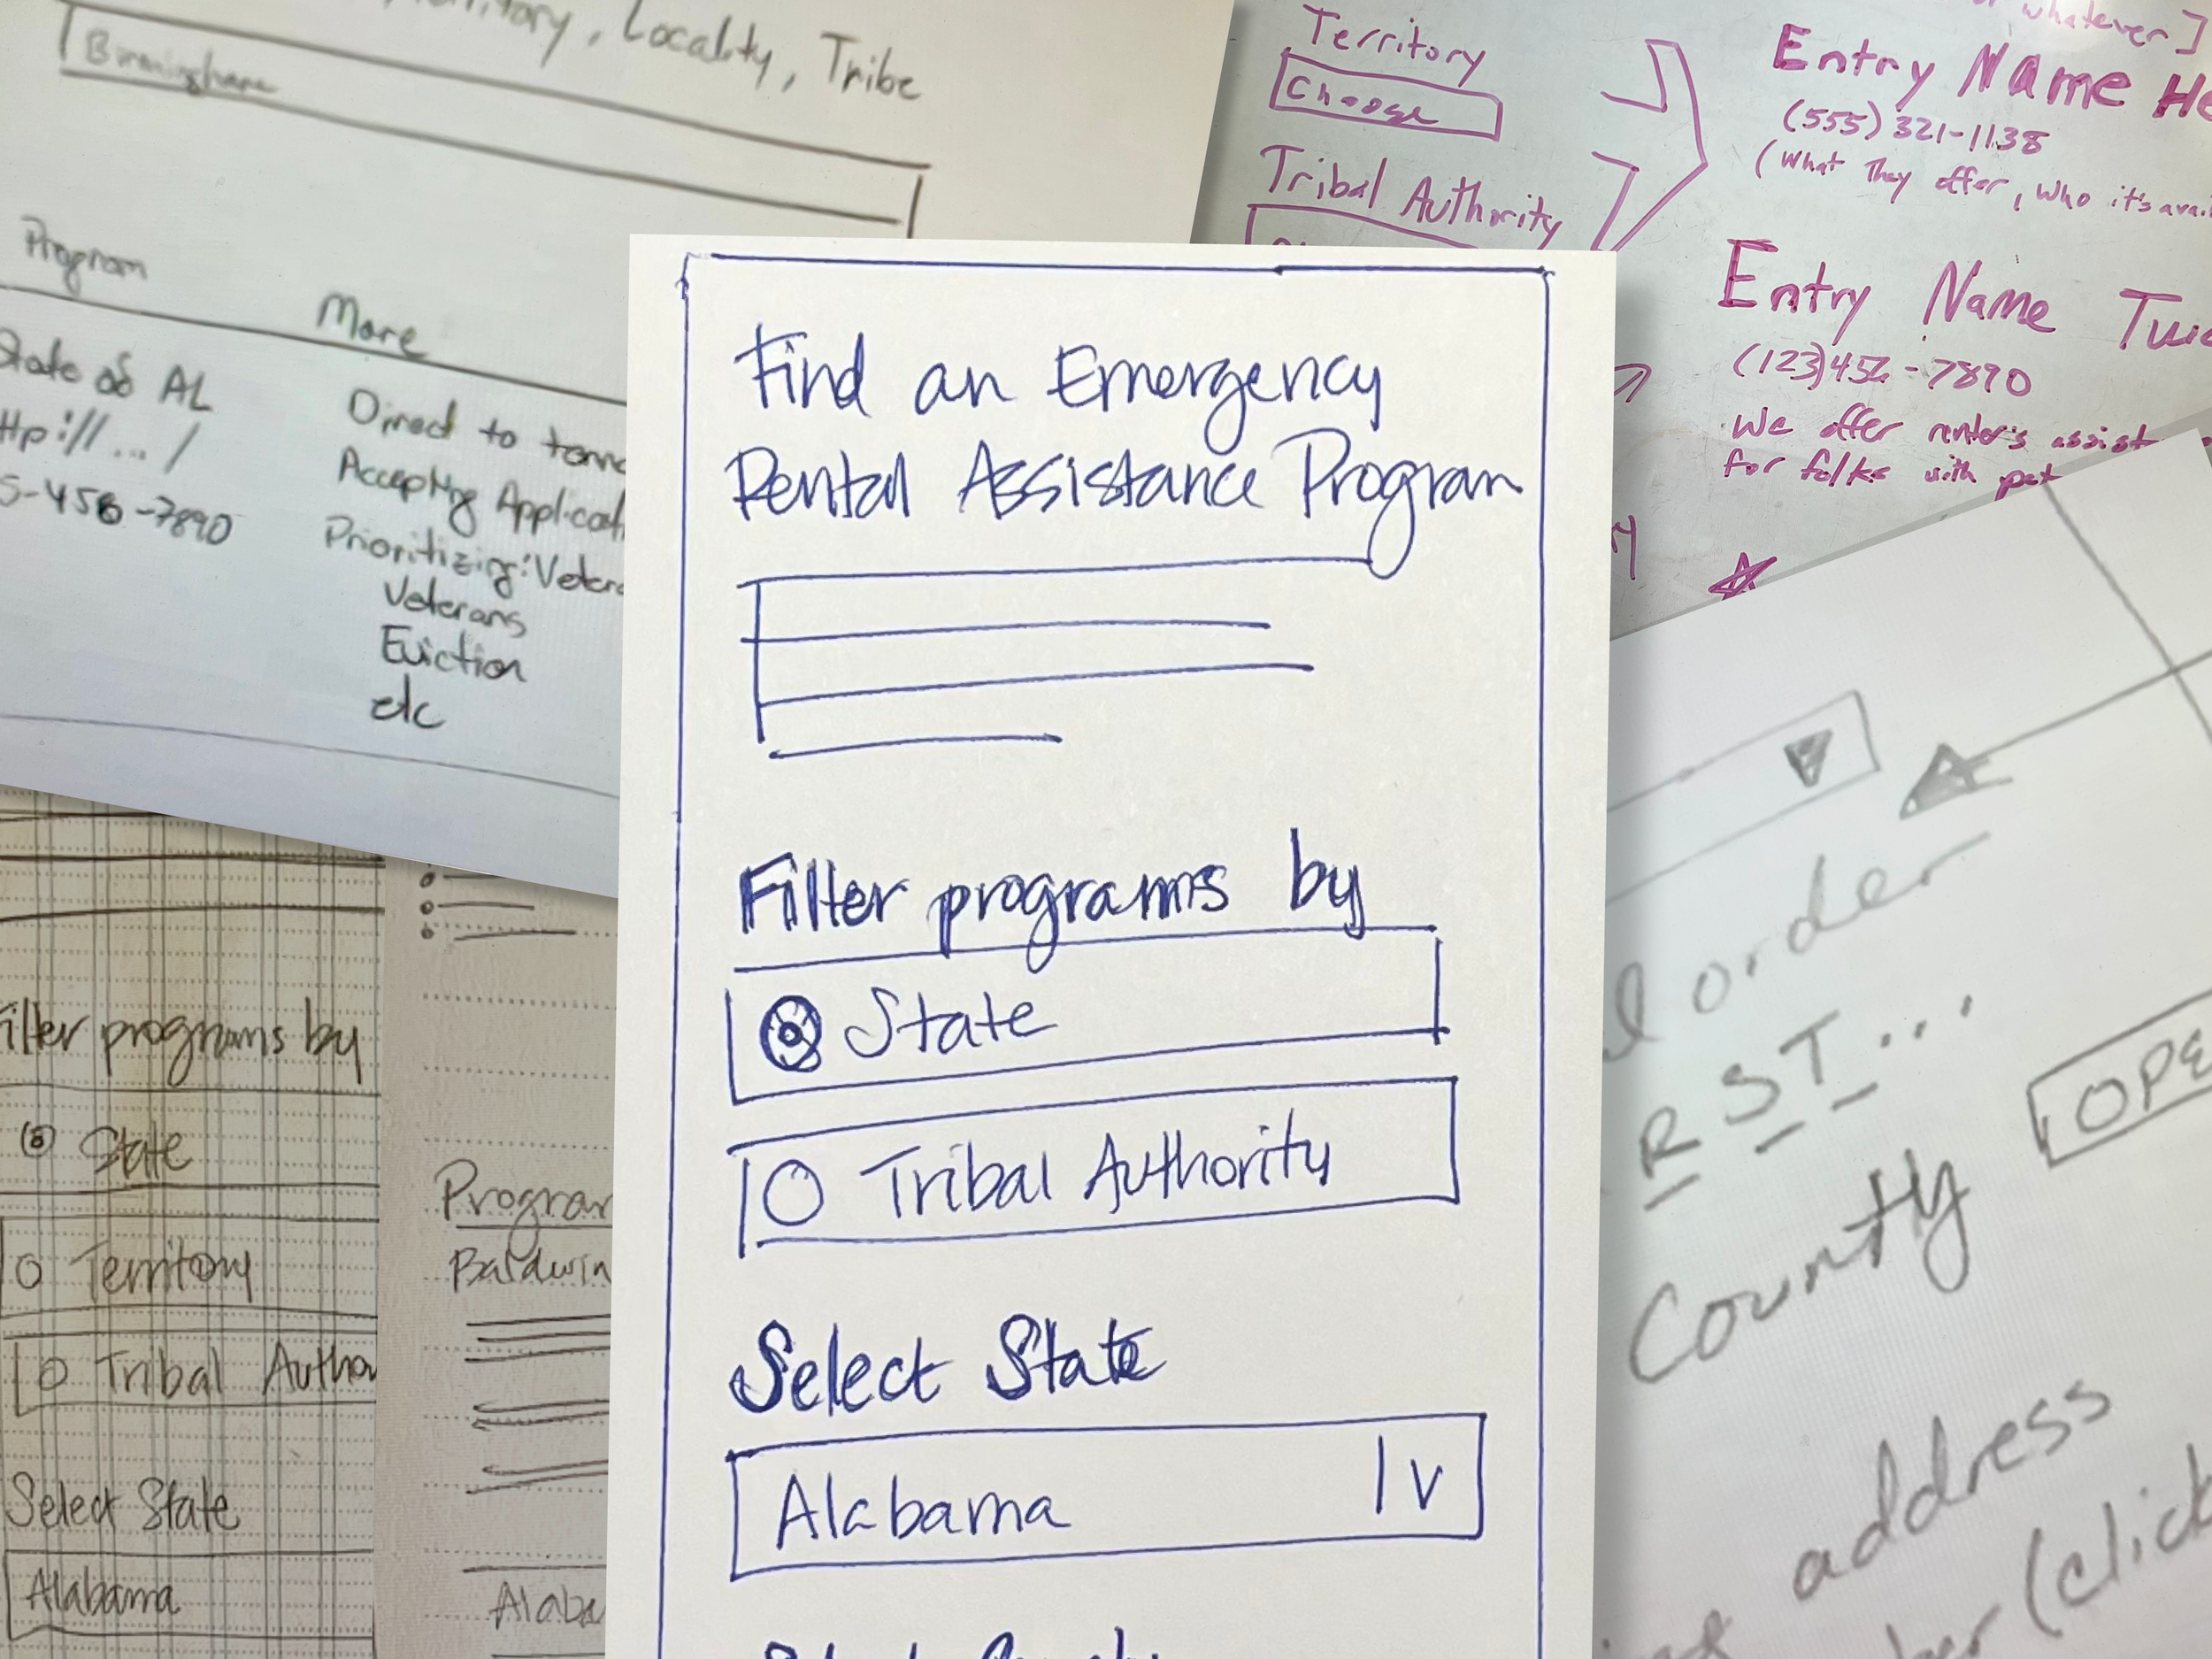 , Locality, Tribe
Birmingham
Program
More
State of AL
ttp://.../
5-456-7890
Direct to tena
Accepting Applicat
Prioritizing: Vetera
Veterans
Eviction
etc
Territory
Choose
Tribal Authority
or whatever]
Entry Name He
(555) 321-1138
(What they offer, who it's avai
Entry Name Twic
(123)456-7890
We offer renter's assist
for folks with pet
Find an Emergency
Rental Assistance Program
Filter programs by
State
Tribal Authority
Select State
Alabama
ilter programs by
State
Territory
Tribal Autho
Select State
Alabama
Program
Baldwin
Alaba
l order
R S T ...
County
OPE
address
ber (click